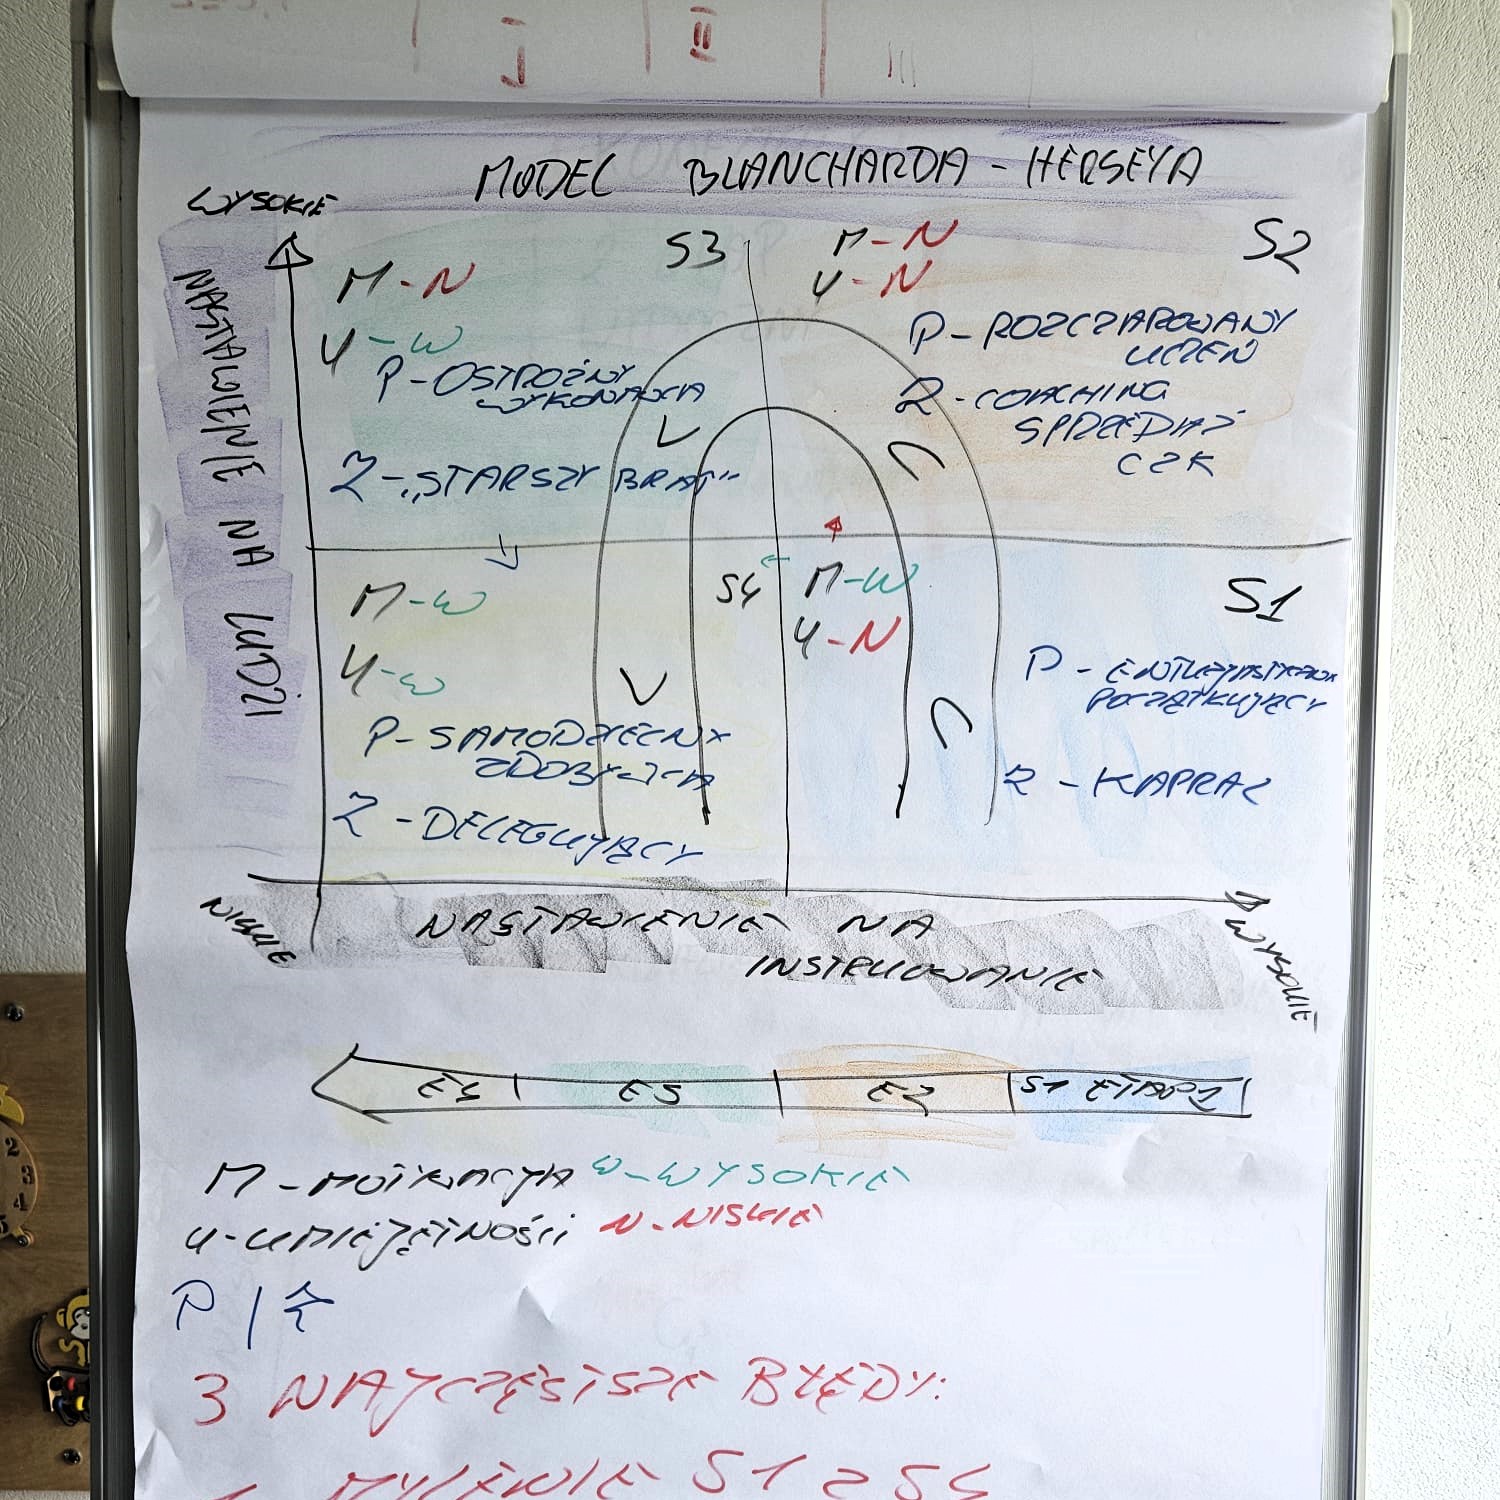 I
II
III
MODEL BLANCHARDA - HERSEYA
WYSOKIE
NASTAWIENIE NA LUDZI
S3
M - N
U - W
P - OSTROŻNY
WYKONAWCA
Z - „STARSZY BRAT"
M - N
U - N
S2
P - ROZCZAROWANY
UCZEŃ
Z - COACHING
SPRZEDAŻ
CZK
S4
M - W
U - W
P - SAMODZIELNY
ZDOBYWCA
Z - DELEGUJĄCY
M - W
U - N
S1
P - ENTUZJASTYCZNY
POCZĄTKUJĄCY
Z - KAPRAL
NISKIE
NASTAWIENIE NA
INSTRUOWANIE
WYSOKIE
E4 E3 E2 S1 ETAP1
M - MOTYWACJA W - WYSOKIE
U - UMIEJĘTNOŚCI N - NISKIE
P / Z
3 NAJCZĘSTSZE BŁĘDY:
MYLENIE S1 Z S4